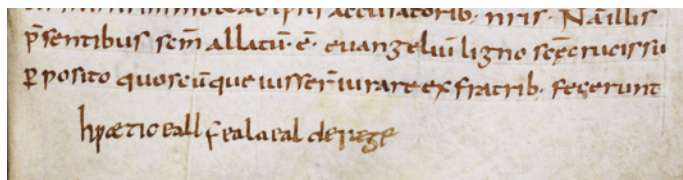 accusatorib· nr̄is· Nā illis
p̄sentibus scm̄ allatū· ē· euangeliū ligno scę̄ crucis su
ꝑposito quoscūque iusser̄ iurare ex fratrib· fecerunt
hƿæt ic eall feala eal de rege